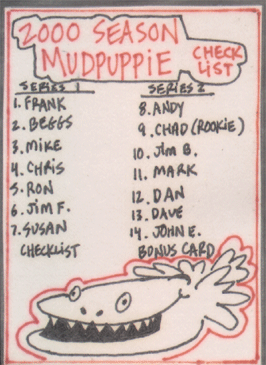 2000 SEASON
MUDPUPPIE
CHECK
LIST
SERIES 1
1. FRANK
2. BEGGS
3. MIKE
4. CHRIS
5. RON
6. JIM F.
7. SUSAN
CHECKLIST
SERIES 2
8. ANDY
9. CHAD (ROOKIE)
10. JIM B.
11. MARK
12. DAN
13. DAVE
14. JOHN E.
BONUS CARD